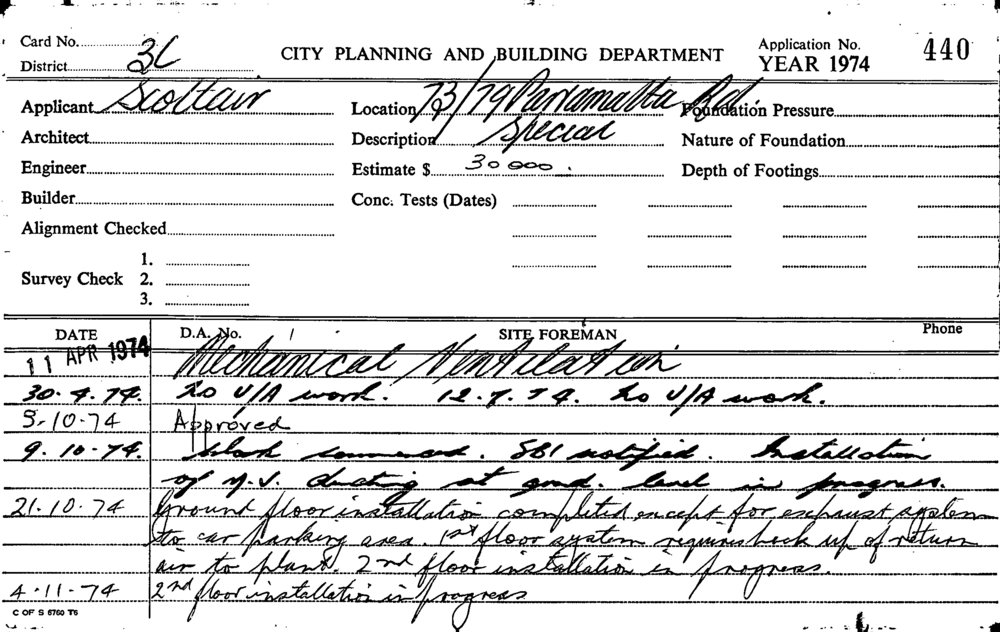 Card No. CITY PLANNING AND BUILDING DEPARTMENT Application No. 440
District 3C YEAR 1974
Applicant Scottair Location 73/79 Parramatta Rd. Foundation Pressure
Architect Description Special Nature of Foundation
Engineer Estimate $ 30 000. Depth of Footings
Builder Conc. Tests (Dates)
Alignment Checked
1.
Survey Check 2.
3.
DATE D.A. No. SITE FOREMAN Phone
11 APR 1974 Mechanical Ventilation
30.4.74. No U/A work. 12.7.74. No U/A work.
3.10.74 Approved
9.10.74. Work commenced. SBI notified. Installation
of M.V. ducting at grnd. level in progress.
21.10.74 Ground floor installation completed except for exhaust system
to car parking area. 1st floor system requires hook up of return
air to plant. 2nd floor installation in progress.
4.11.74 2nd floor installation in progress
C OF S 6760 T6